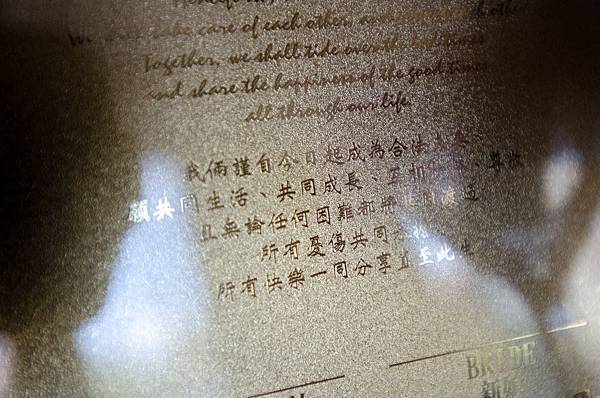 We shall take care of each other,
Together, we shall tide over the
and share the happiness of the good times
all through our life.
我倆謹自今日起成為合法
願共同生活、共同成長、互相
且無論任何困難都將共同渡過
所有憂傷共同分
所有快樂一同分享直至此生
BRIDE
新娘